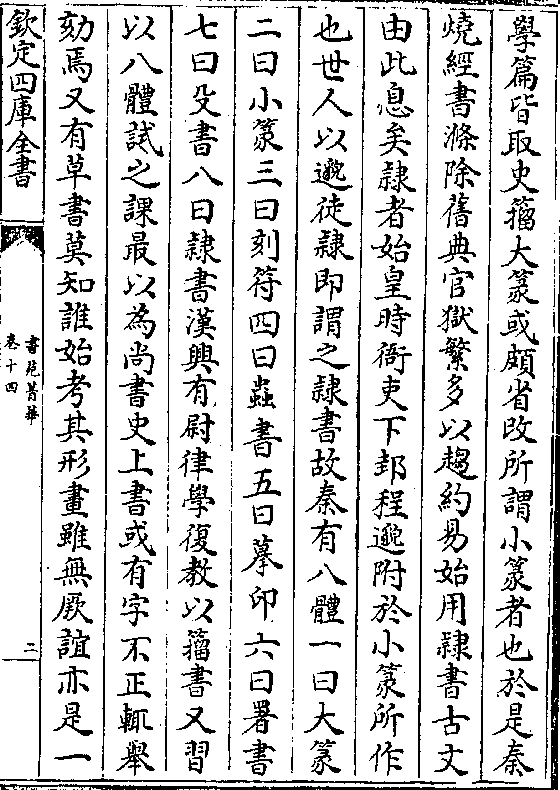 學篇皆取史籀大篆或頗省改所謂小篆者也於是秦
燒經書滌除舊典官獄繁多以趨約易始用隸書古文
由此息矣隸者始皇時衙吏下邽程邈附於小篆所作
也世人以邈徒隸即謂之隸書故秦有八體一曰大篆
二曰小篆三曰刻符四曰蟲書五曰摹印六曰署書
七曰殳書八曰隸書漢興有尉律學復教以籀書又習
以八體試之課最以為尚書史上書或有字不正輒舉
劾焉又有草書莫知誰始考其形畫雖無厥誼亦是一
欽定四庫全書
書苑菁華
卷十四
二